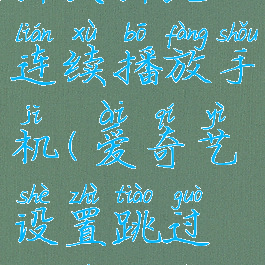 lián xù bō fàng shǒu
连续播放手
jī ài qí yì
机(爱奇艺
shè zhì tiào guò
设置跳过